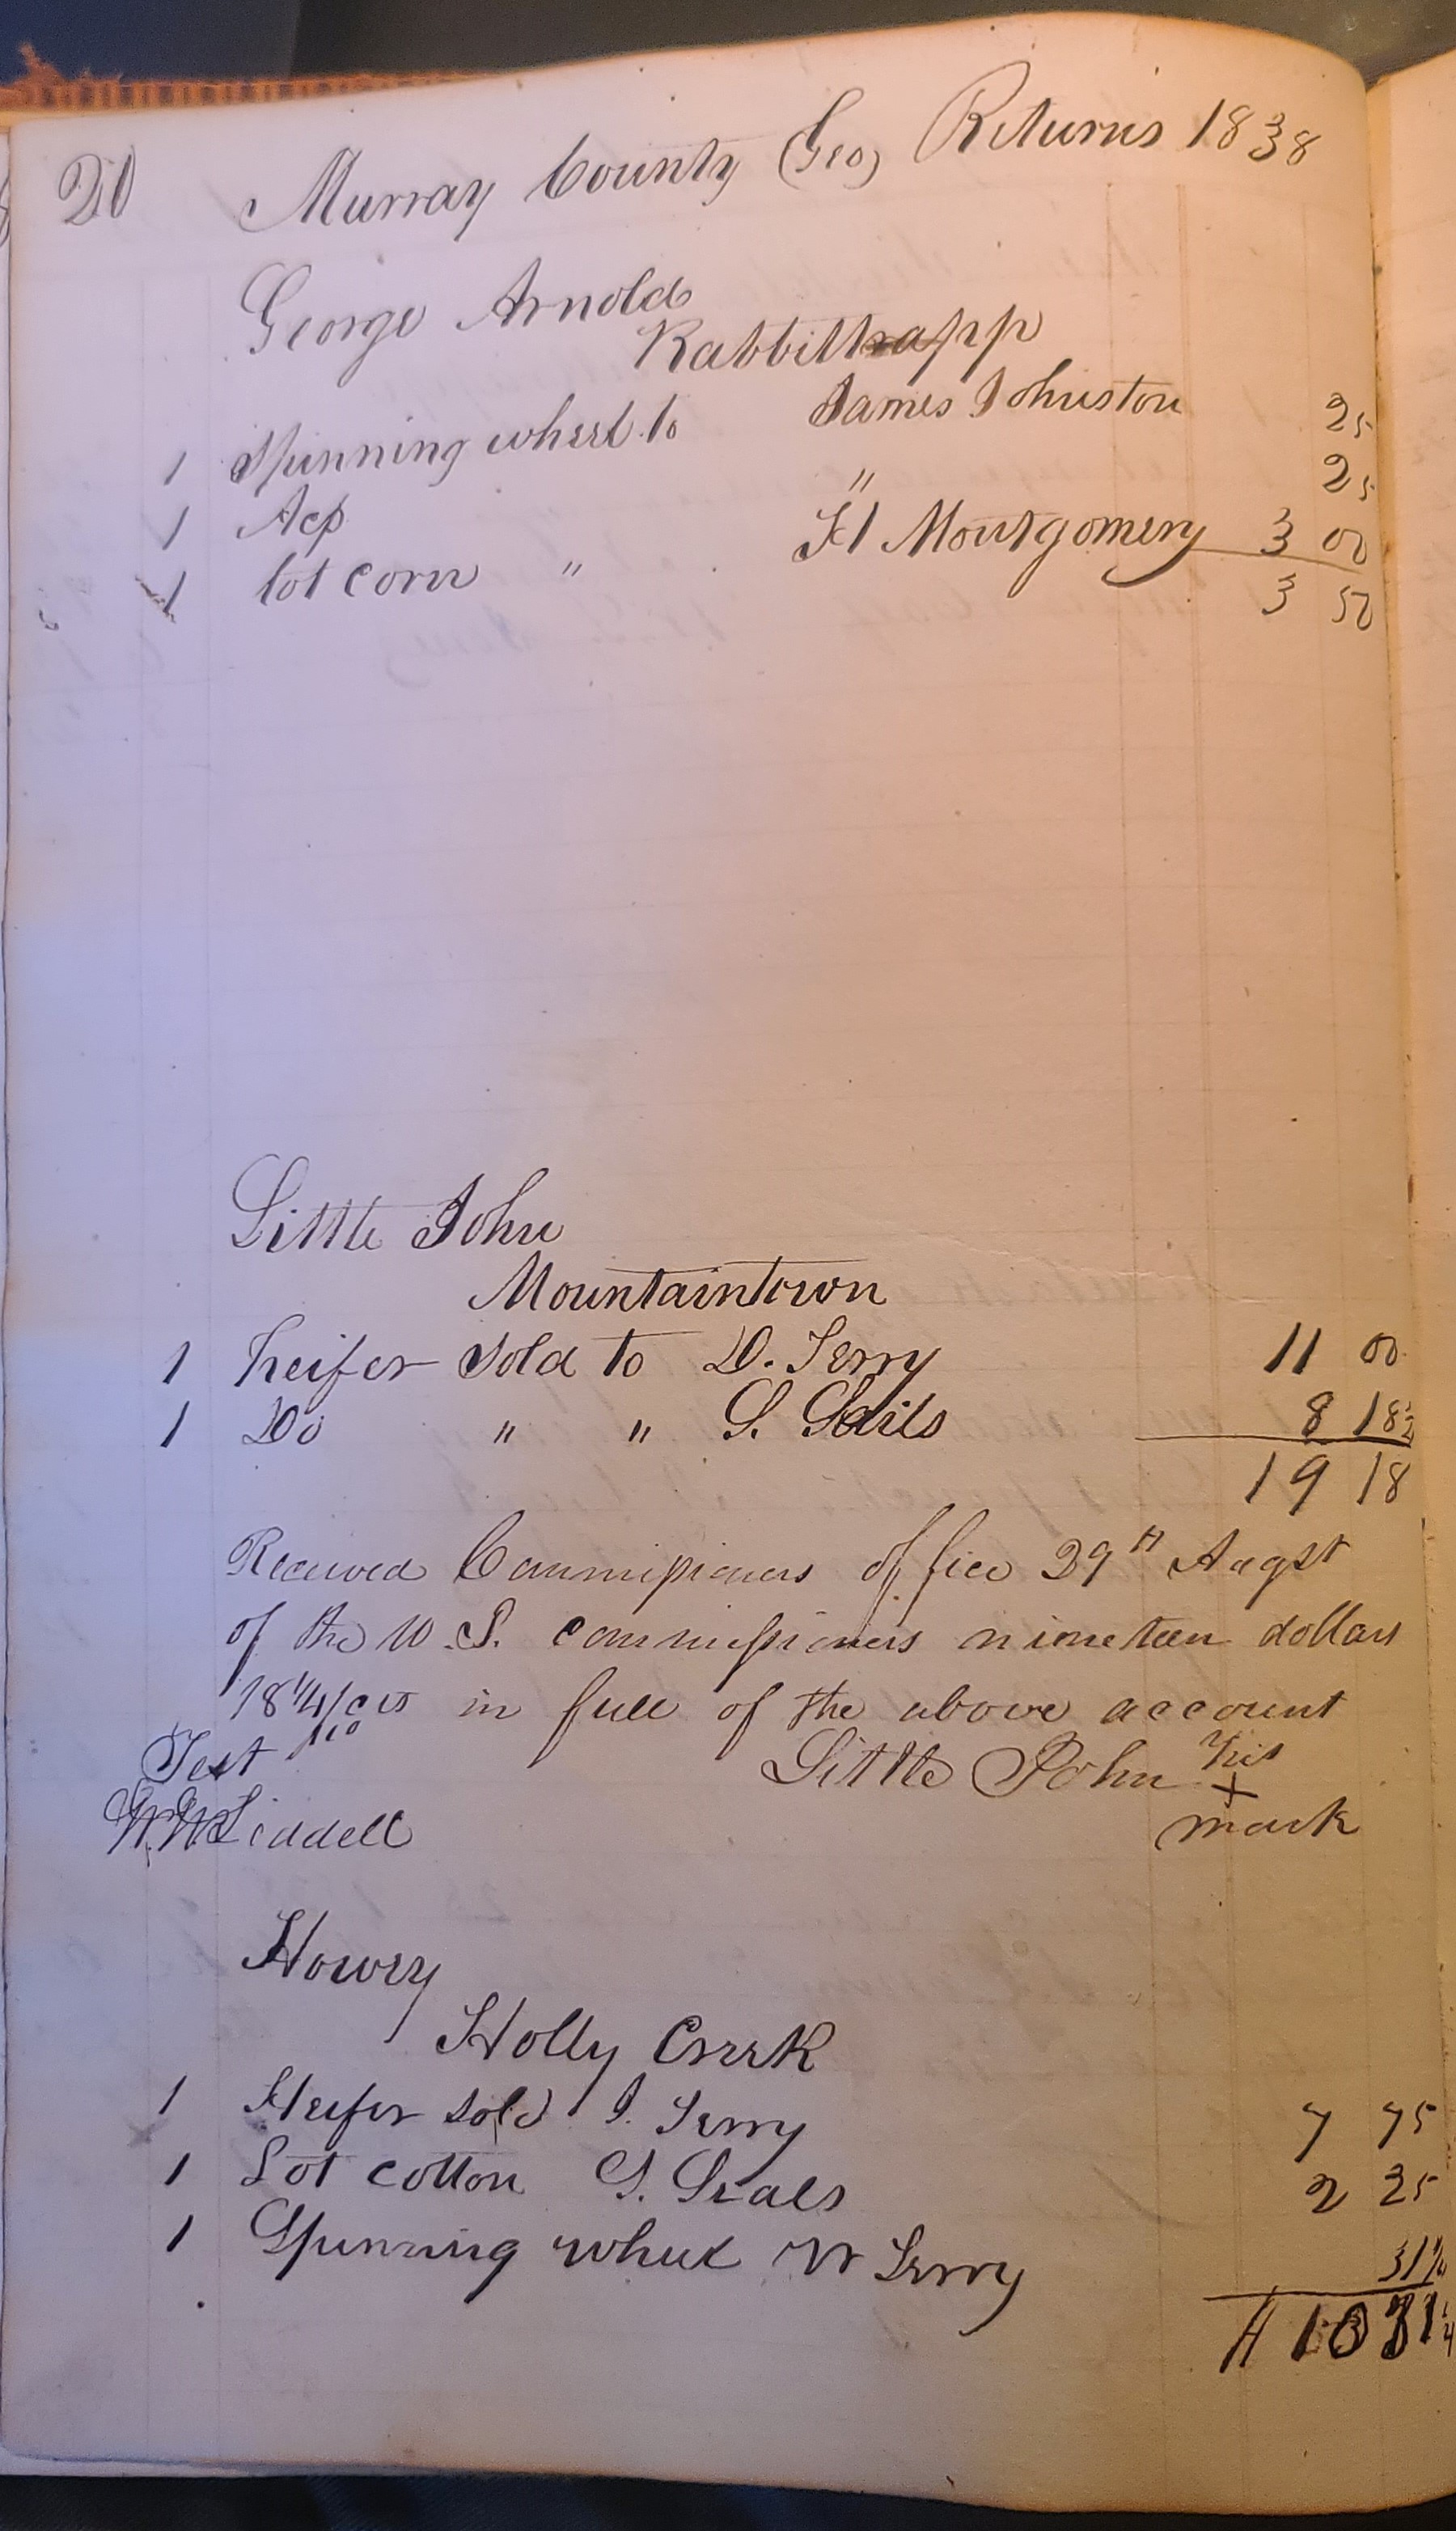 20 Murray County (Geo) Returns 1838
George Arnold
Rabbittrapp
1 Spinning wheel to James Johnston 25
1 Acp " 25
1 lot corn " H Montgomery 3 00
3 50
Little John
Mountaintown
1 heifer sold to D. Terry 11 00
1 Do " " S. 8 18½
19 18
Received Commissioners office 29th Augst
of the U.S. commissioners nineteen dollars
18 1/4/cts in full of the above account
Test Little John his
+
W.W. Liddell mark
Howey
Holly Creek
1 Heifer sold J. Terry 7 75
1 Lot cotton S. Seals 2 25
1 Spinning wheel W Terry 31¼
10 31¼